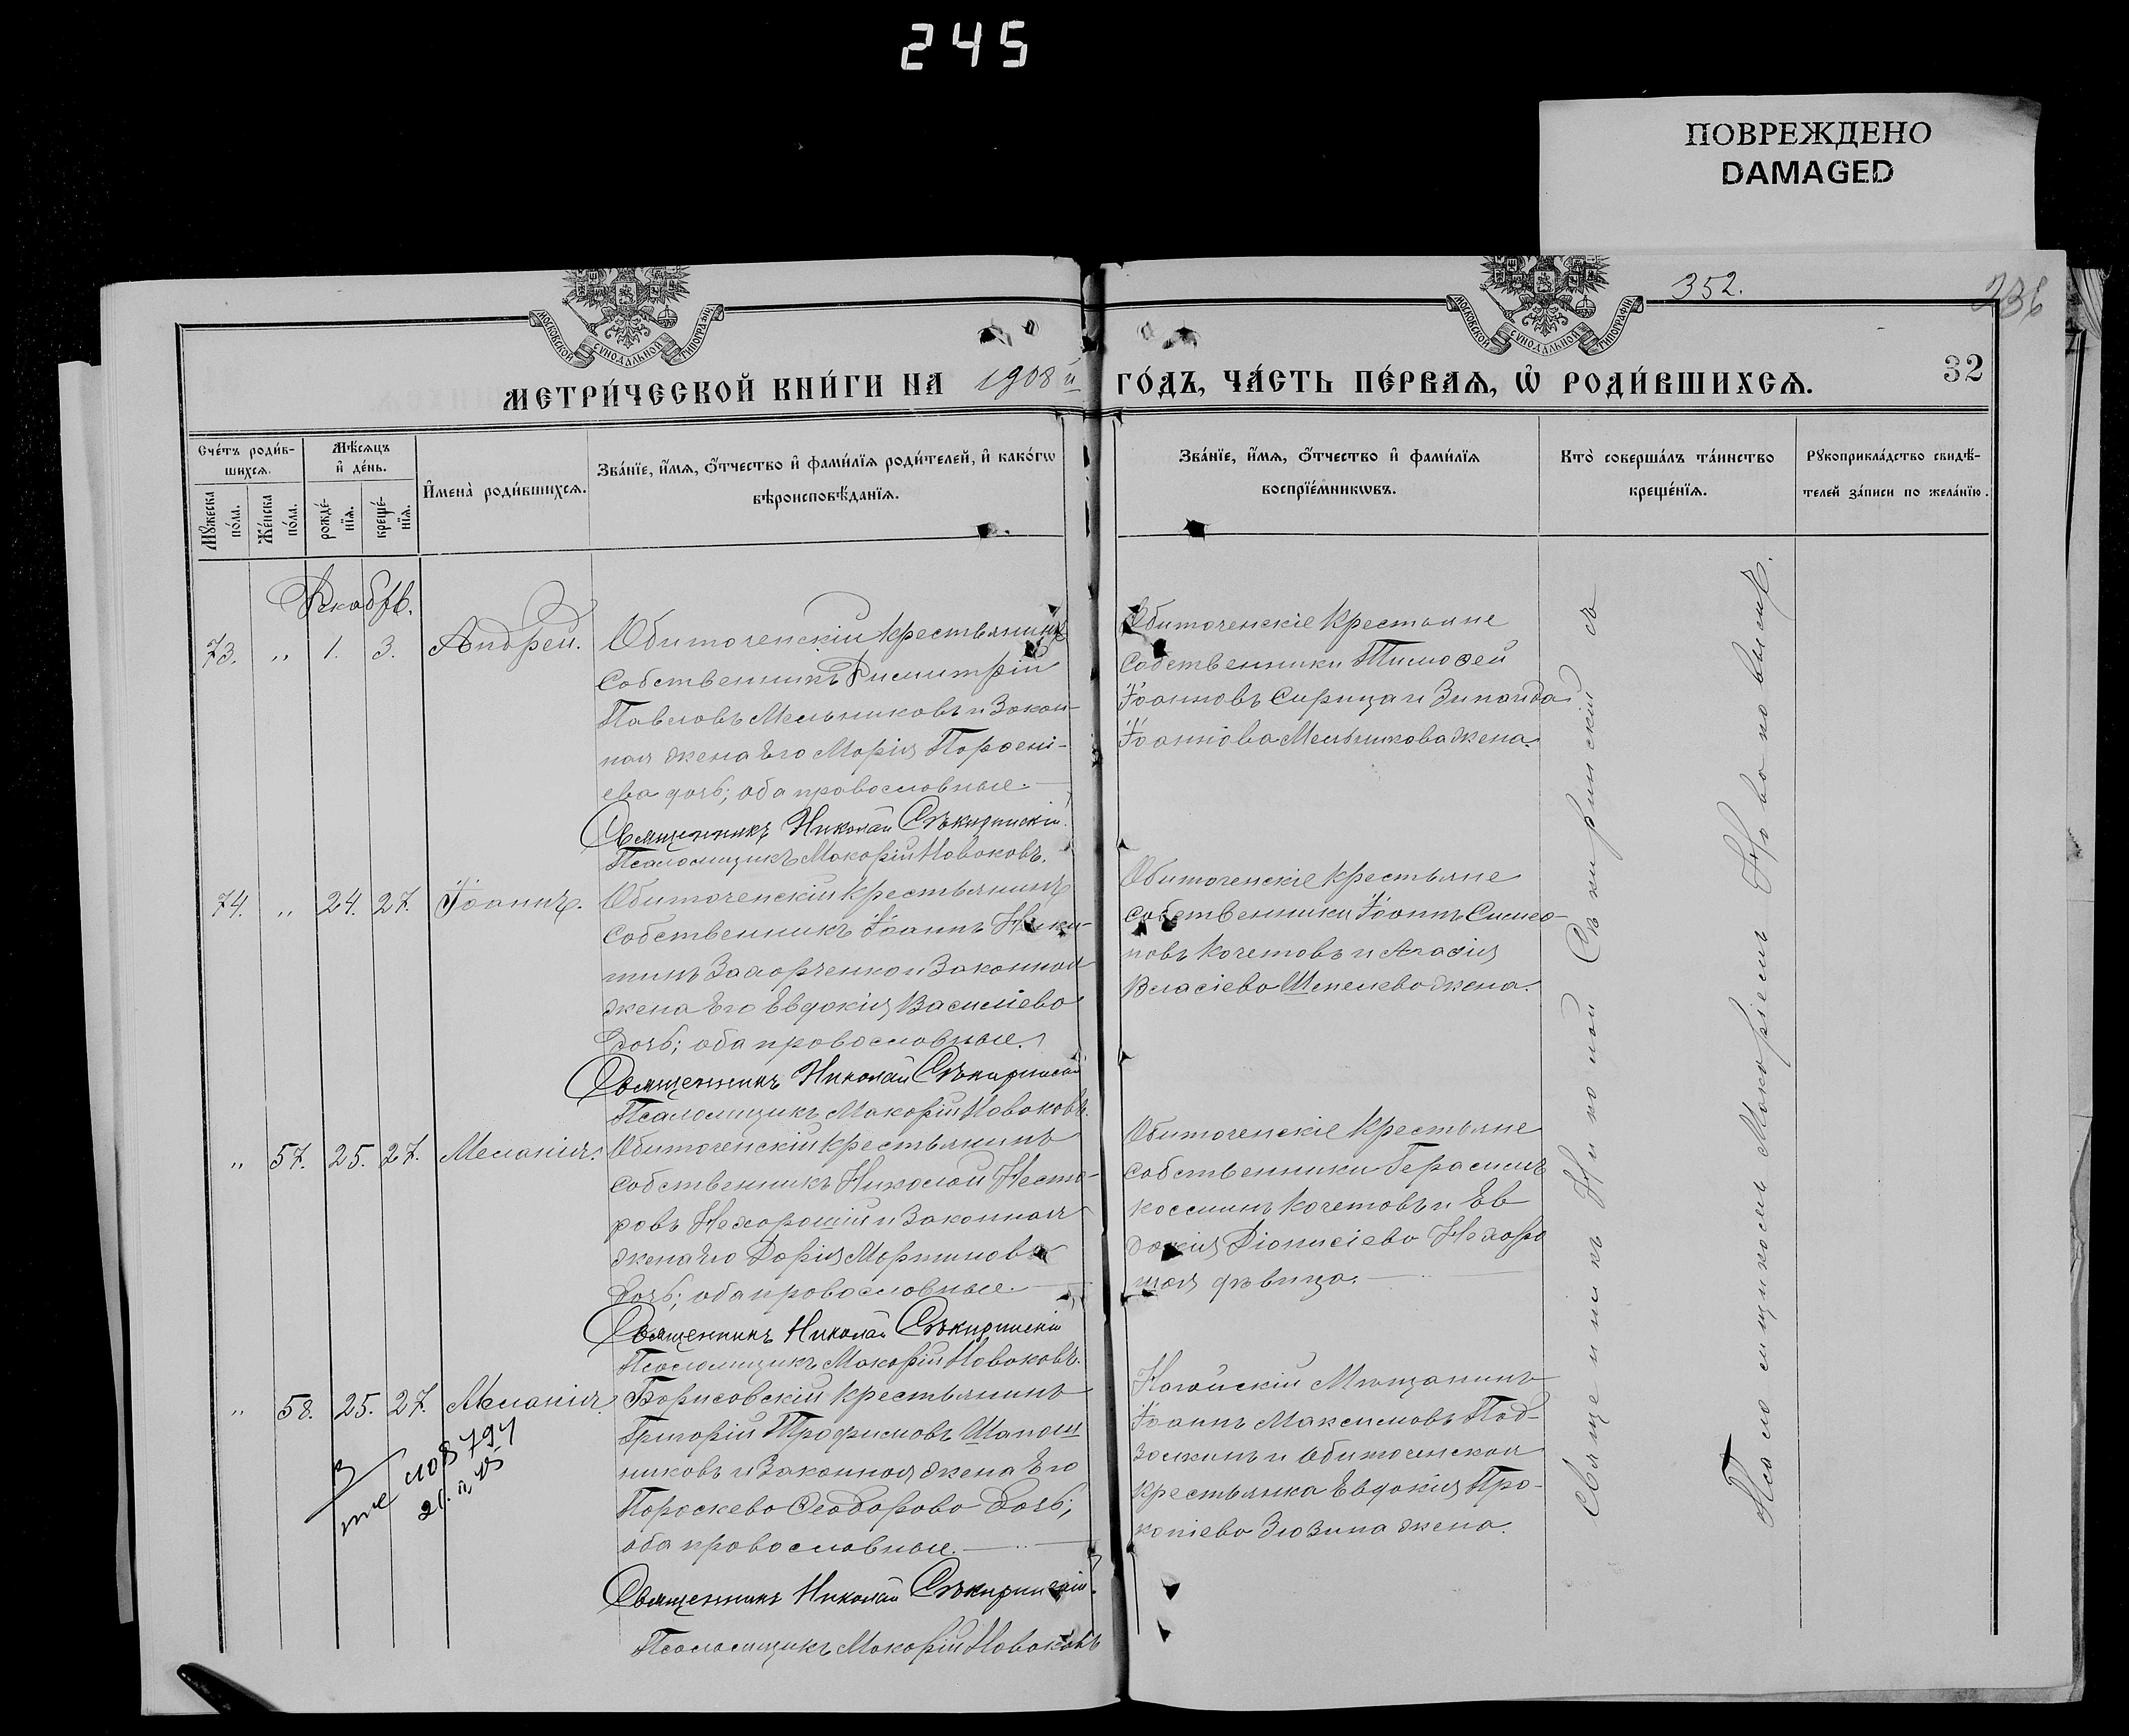 245
ПОВРЕЖДЕНО
DAMAGED
352.
236
МОСКОВСКОЙ СѴНОДАЛЬНОЙ ТИПОГРАФІИ
МОСКОВСКОЙ СѴНОДАЛЬНОЙ ТИПОГРАФІИ
32
МЕТРИ́ЧЕСКОЙ КНИ́ГИ НА 1908 й ГО́ДЪ, ЧА́СТЬ ПЕ́РВАЯ, Ѡ РОДИ́ВШИХСЯ.
Сче́тъ роди́в-
шихся.
Мѣ́сяцъ
и де́нь.
Мꙋ́жеска
по́ла.
Же́нска
по́ла.
рожде́-
нїѧ.
креще́-
нїѧ.
Имена̀ роди́вшихся.
Зва́нїе, и́мѧ, ѻ́тчество и фами́лїѧ роди́телей, и како́гѡ
вѣроисповѣ́данїѧ.
Зва́нїе, и́мѧ, ѻ́тчество и фами́лїѧ
воспрїе́мникѡвъ.
Кто̀ соверша́лъ та́инство
креще́нїѧ.
Рꙋкоприкла́дство свидѣ́-
телей за́писи по жела́нїю.
Декабрь.
73. „ 1. 3. Андрей.
Обиточенскій крестьянинъ
собственникъ Димитрій
Павловъ Мельниковъ и закон-
ная жена его Марія Парѳені-
ева дочь; оба православные.
Священникъ Николай Сѣкиринскій.
Псаломщикъ Макарій Новаковъ.
Обиточенскіе крестьяне
собственники Тимоѳей
Іоанновъ Сирица и Зинаида
Іоаннова Мельникова жена.
74. „ 24. 27. Іоаннъ.
Обиточенскій крестьянинъ
собственникъ Іоаннъ Ники-
тинъ Захорченко и законная
жена его Евдокія Василіева
дочь; оба православные.
Священникъ Николай Сѣкиринскій
Псаломщикъ Макарій Новаковъ.
Обиточенскіе крестьяне
собственники Іоаннъ Симео-
новъ Кочетовъ и Агаѳія
Власіева Шепелева жена.
„ 57. 25. 27. Меланія.
Обиточенскій крестьянинъ
собственникъ Николай Несто-
ровъ Нехорошій и законная
жена его Дарія Мартинова
дочь; оба православные.
Священникъ Николай Сѣкиринскій
Псаломщикъ Макарій Новаковъ.
Обиточенскіе крестьяне
собственники Герасимъ
Косминъ Кочетовъ и Ев
докія Діонисіева Нехоро
шая дѣвица.
„ 58. 25. 27. Меланія.
Борисовскій крестьянинъ
Григорій Трофимовъ Шапош
никовъ и законная жена его
Параскева Ѳеодорова дочь;
оба православные.
Священникъ Николай Сѣкиринскій.
Псаломщикъ Макарій Новаковъ
Ногайскій мѣщанинъ
Іоаннъ Максимовъ Под-
золкинъ и Обиточенская
крестьянка Евдокія Про-
копіева Зюзина жена.
Священникъ Николай Сѣкиринскій съ
Псаломщикомъ Макаріемъ Новаковымъ.